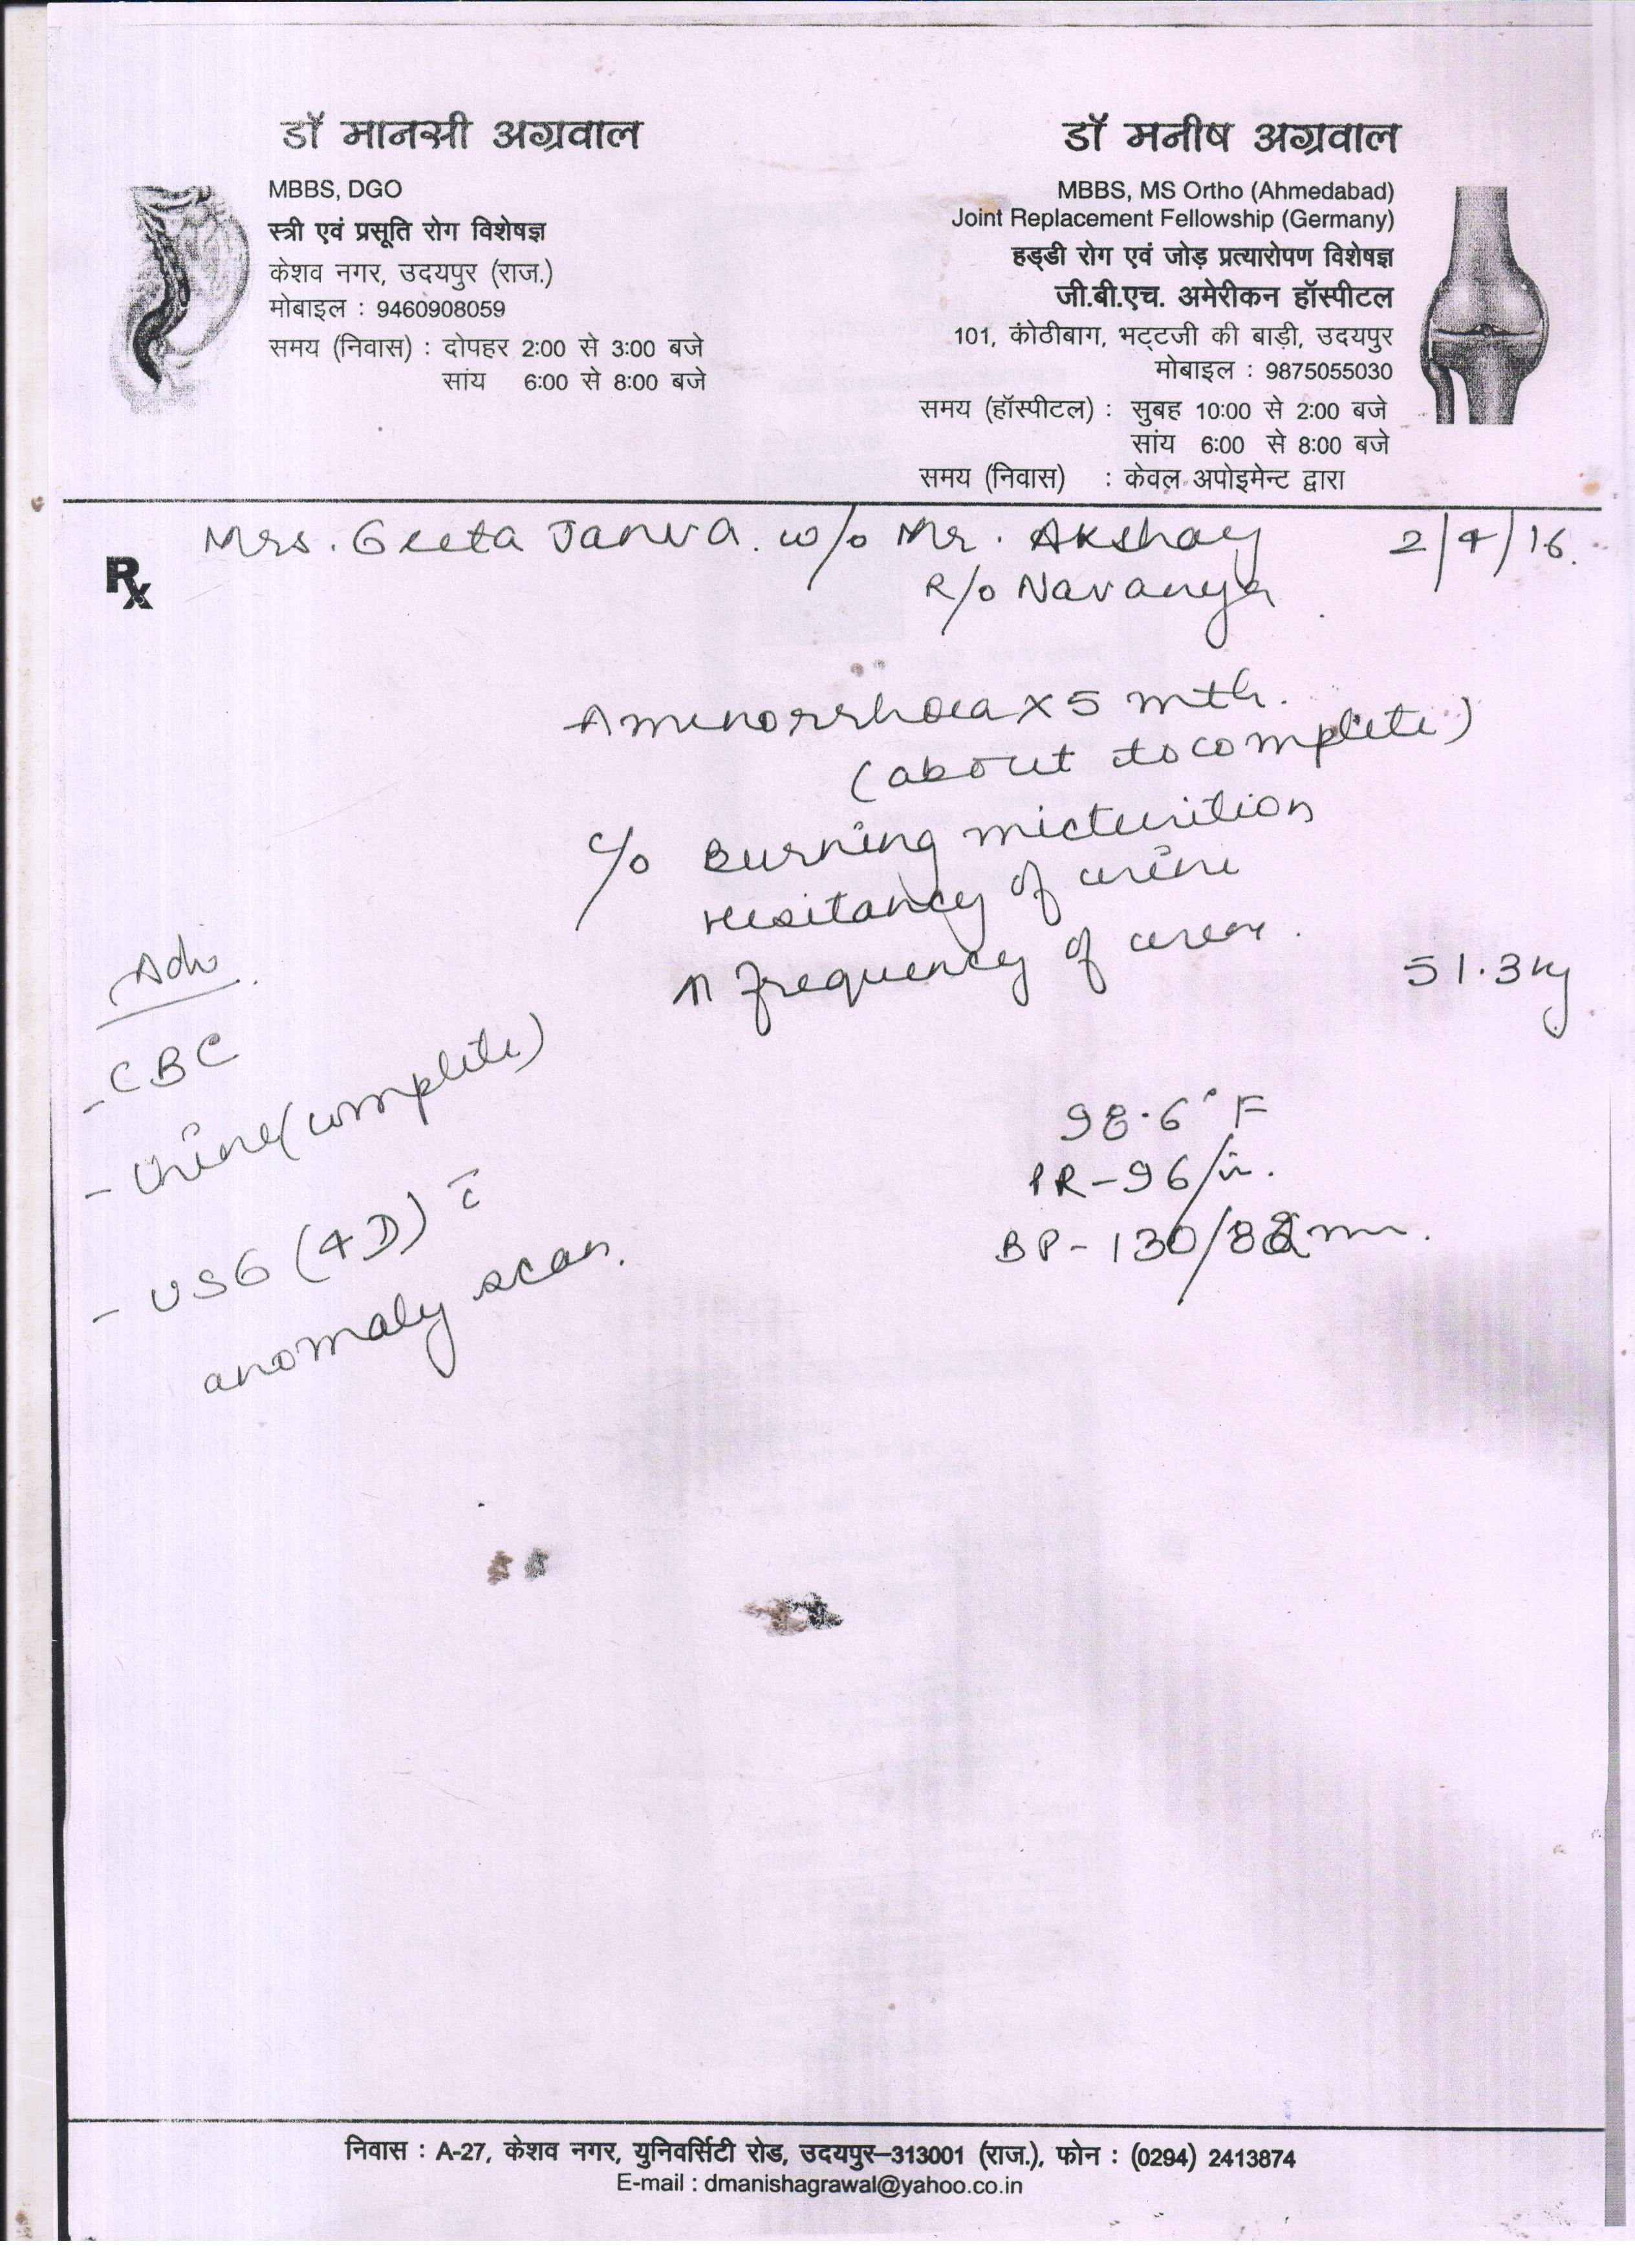 डॉ मानसी अग्रवाल
MBBS, DGO
स्त्री एवं प्रसूति रोग विशेषज्ञ
केशव नगर, उदयपुर (राज.)
मोबाइल : 9460908059
समय (निवास) : दोपहर 2:00 से 3:00 बजे
सांय 6:00 से 8:00 बजे
डॉ मनीष अग्रवाल
MBBS, MS Ortho (Ahmedabad)
Joint Replacement Fellowship (Germany)
हड्डी रोग एवं जोड़ प्रत्यारोपण विशेषज्ञ
जी.बी.एच. अमेरीकन हॉस्पीटल
101, कोठीबाग, भट्टजी की बाड़ी, उदयपुर
मोबाइल : 9875055030
समय (हॉस्पीटल) : सुबह 10:00 से 2:00 बजे
सांय 6:00 से 8:00 बजे
समय (निवास) : केवल अपोइमेन्ट द्वारा
Mrs. Geeta Janva. w/o Mr. Akshay 2/4/16.
Rx
R/o Navanya
Amenorrhoea x 5 mth.
(about to complete)
c/o Burning micturition
Hesitancy of urine
↑ frequency of urine.
51.3 kg
Adv.
- CBC
- Urine (complete)
- USG (4D) c̄
anomaly scan.
98.6° F
PR - 96/
BP - 130/
निवास : A-27, केशव नगर, युनिवर्सिटी रोड, उदयपुर–313001 (राज.), फोन : (0294) 2413874
E-mail : dmanishagrawal@yahoo.co.in